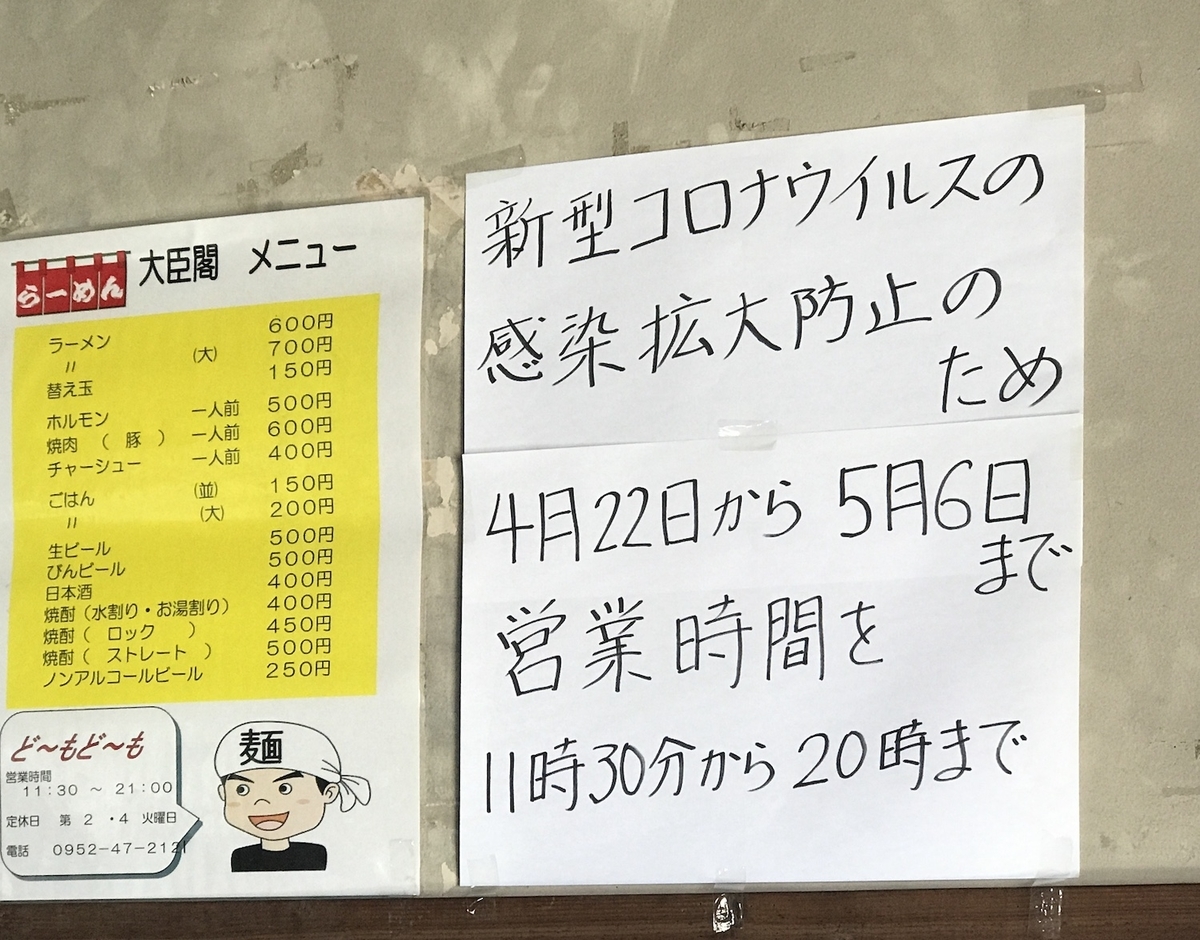 らーめん 大臣閣 メニュー
ラーメン 600円
〃 (大) 700円
替え玉 150円
ホルモン 一人前 500円
焼肉 ( 豚 ) 一人前 600円
チャーシュー 一人前 400円
ごはん (並) 150円
〃 (大) 200円
生ビール 500円
びんビール 500円
日本酒 400円
焼酎(水割り・お湯割り) 400円
焼酎( ロック ) 450円
焼酎( ストレート ) 500円
ノンアルコールビール 250円
ど〜もど〜も
営業時間
11:30 〜 21:00
定休日 第 2 ・4 火曜日
電話 0952-47-2121
麺
新型コロナウイルスの
感染拡大防止の
ため
4月22日から 5月6日
まで
営業時間を
11時30分から20時まで